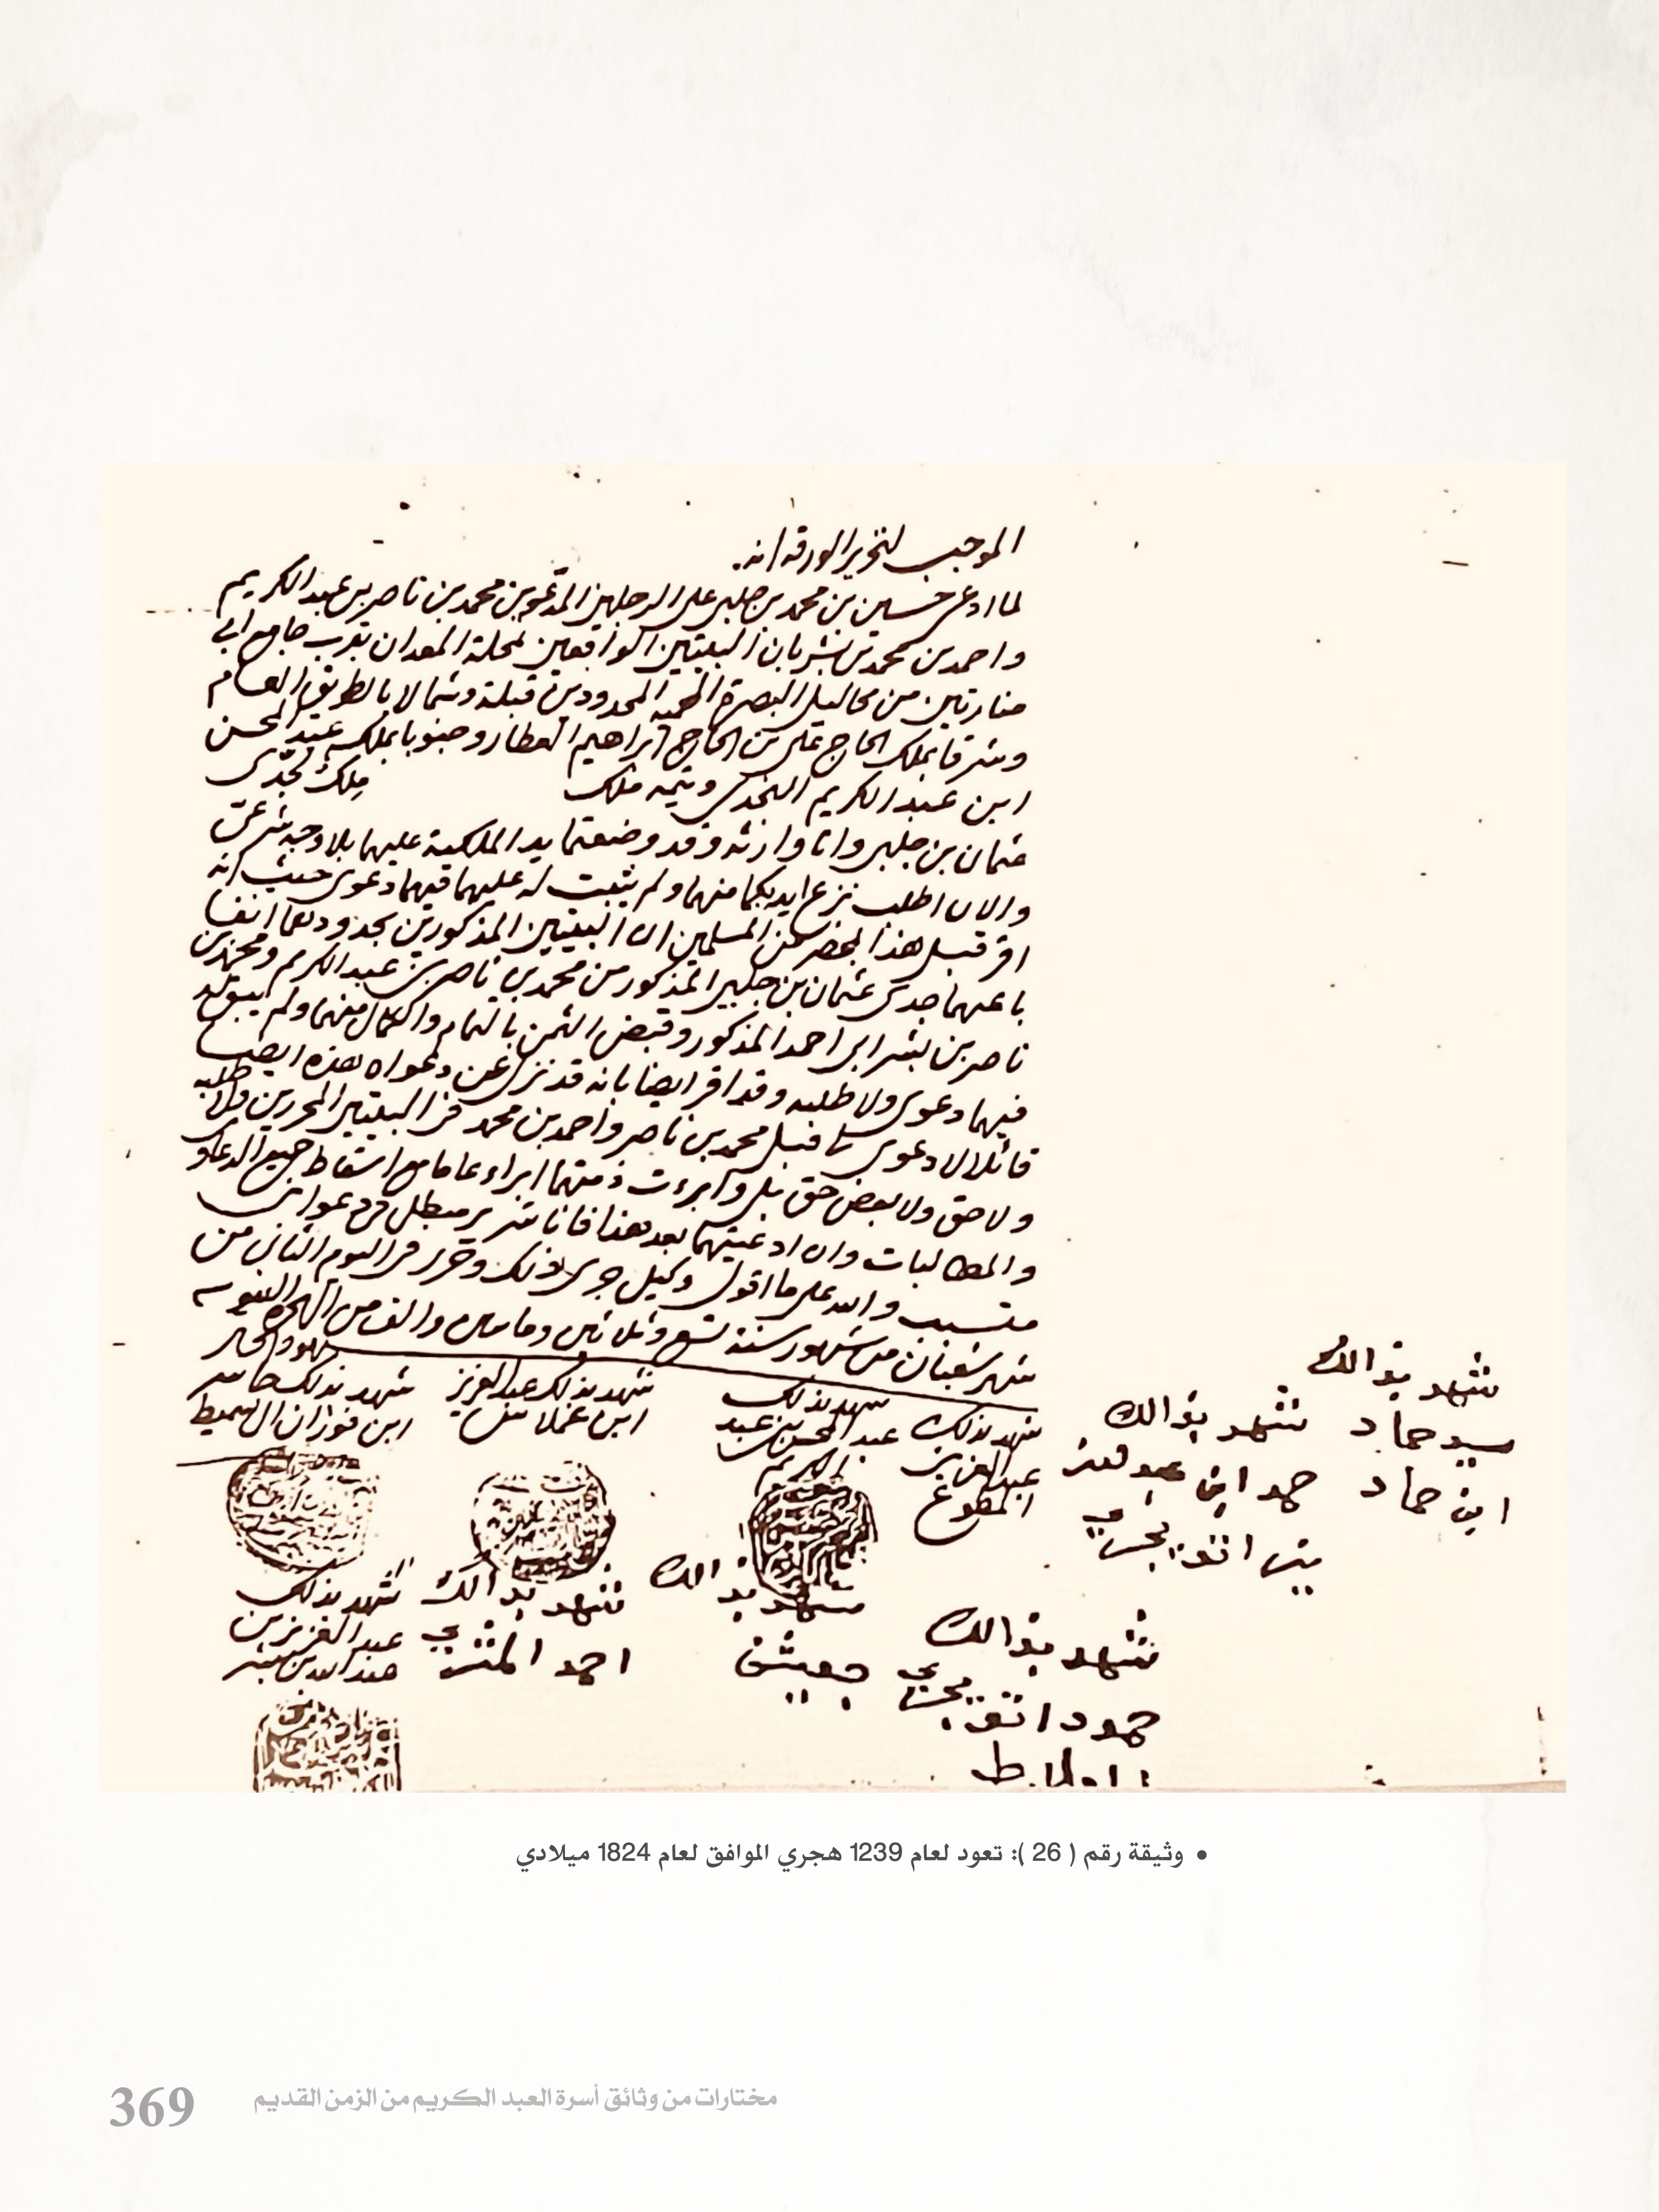 الموجب لتحرير الورقه انه
لما ادعى حسين بن محمد بن جلبي على الرجلين المدعوين محمد بن ناصر بن عبد الكريم
واحمد بن محمد بن بشر بان البيتين الواقعين لمحلة المعدان بقرب جامع ابي
منارتين من محاليل البصرة المحميه المحدودين قبلة وشمالا بالطريق العام
وشرقا بملك الحاج علي بن الحاج ابراهيم العطار وجنوبا بملك عبد المحسن
ابن عبد الكريم النجدي ملك ملك لجدي
عثمان بن جلبي وانا وارثه وقد وضعتما يد الملكية عليهما بلا وجه شرعي
والان اطلب نزع ايديكما منهما ولم يثبت له عليهما فيهما دعوى حيث انه
اقر قبل هذا بمحضر من المسلمين ان البيتين المذكورين بحدودهما انفا
باعهما جدي عثمان بن جلبي المذكور من محمد بن ناصر بن عبد الكريم ومحمد بن
ناصر بن بشر ابي احمد المذكور وقبض الثمن بالتمام والكمال منهما ولم يبق له
فيهما دعوى ولا طلبه وقد اقر ايضا بانه قد نزل عن دعواه هذه ايضا
قائلا لا دعوى لي قبل محمد بن ناصر واحمد بن محمد في البيتين المحررين ولا طلبه
ولا حق ولا بعض حق بل وابرءت ذمتهما ابراء عاما مع اسقاط جميع الدعاوي
والمطالبات وان ادعيتهما بعد هذا فانا مبطل في دعواي
والله على ما اقول وكيل جرى ذلك وحرر في اليوم الثاني من
شهر شعبان من شهور سنة تسع وثلاثين ومامين والف من الهجره النبويه
شهود الحال
شهد بذلك حاسر
ابن فوزان ال سميط
شهد بذلك عبد العزيز
ابن
شهد بذلك
عبد المحسن بن عبد
الكريم
شهد بذلك
عبد العزيز
المطوع
شهد بذالك
حمد ابن عبد لعزيز
بن اتويجري
شهد بذالك
سيد حماد
ابن حماد
شهد بذلك
عبد العزيز بن
عبد الله بن بشر
شهد بذالك
احمد المثني
شهد بذالك
جعيثن
شهد بذالك
حمود اتويجري
• وثيقة رقم ( 26 ): تعود لعام 1239 هجري الموافق لعام 1824 ميلادي
مختارات من وثائق أسرة العبد الكريم من الزمن القديم
369